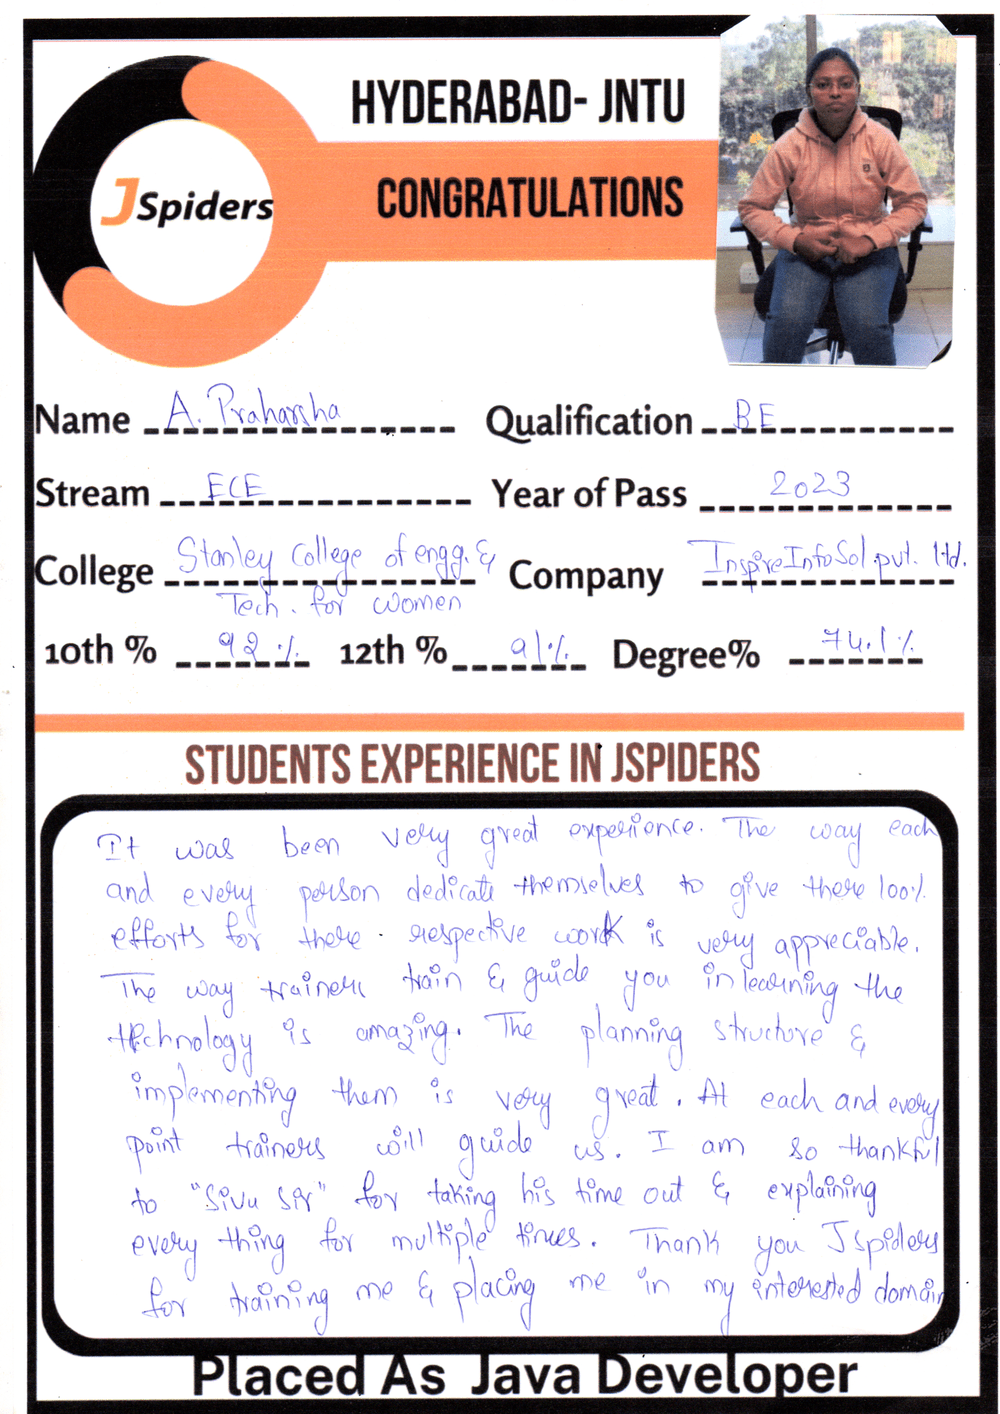 HYDERABAD- JNTU
JSpiders
CONGRATULATIONS
Name A. Praharsha Qualification BE
Stream ECE Year of Pass 2023
College Stanley College of engg. & Company InspireInfoSol.pvt. ltd.
Tech. for women
10th % 92% 12th % 91% Degree% 74.1%
STUDENTS EXPERIENCE IN JSPIDERS
It was been very great experience. The way each
and every person dedicate themselves to give there 100%
efforts for there respective work is very appreciable.
The way trainers train & guide you in learning the
technology is amazing. The planning structure &
implementing them is very great. At each and every
point trainers will guide us. I am so thankful
to "Sivu Sir" for taking his time out & explaining
every thing for multiple times. Thank you Jspiders
for training me & placing me in my interested domain
Placed As Java Developer